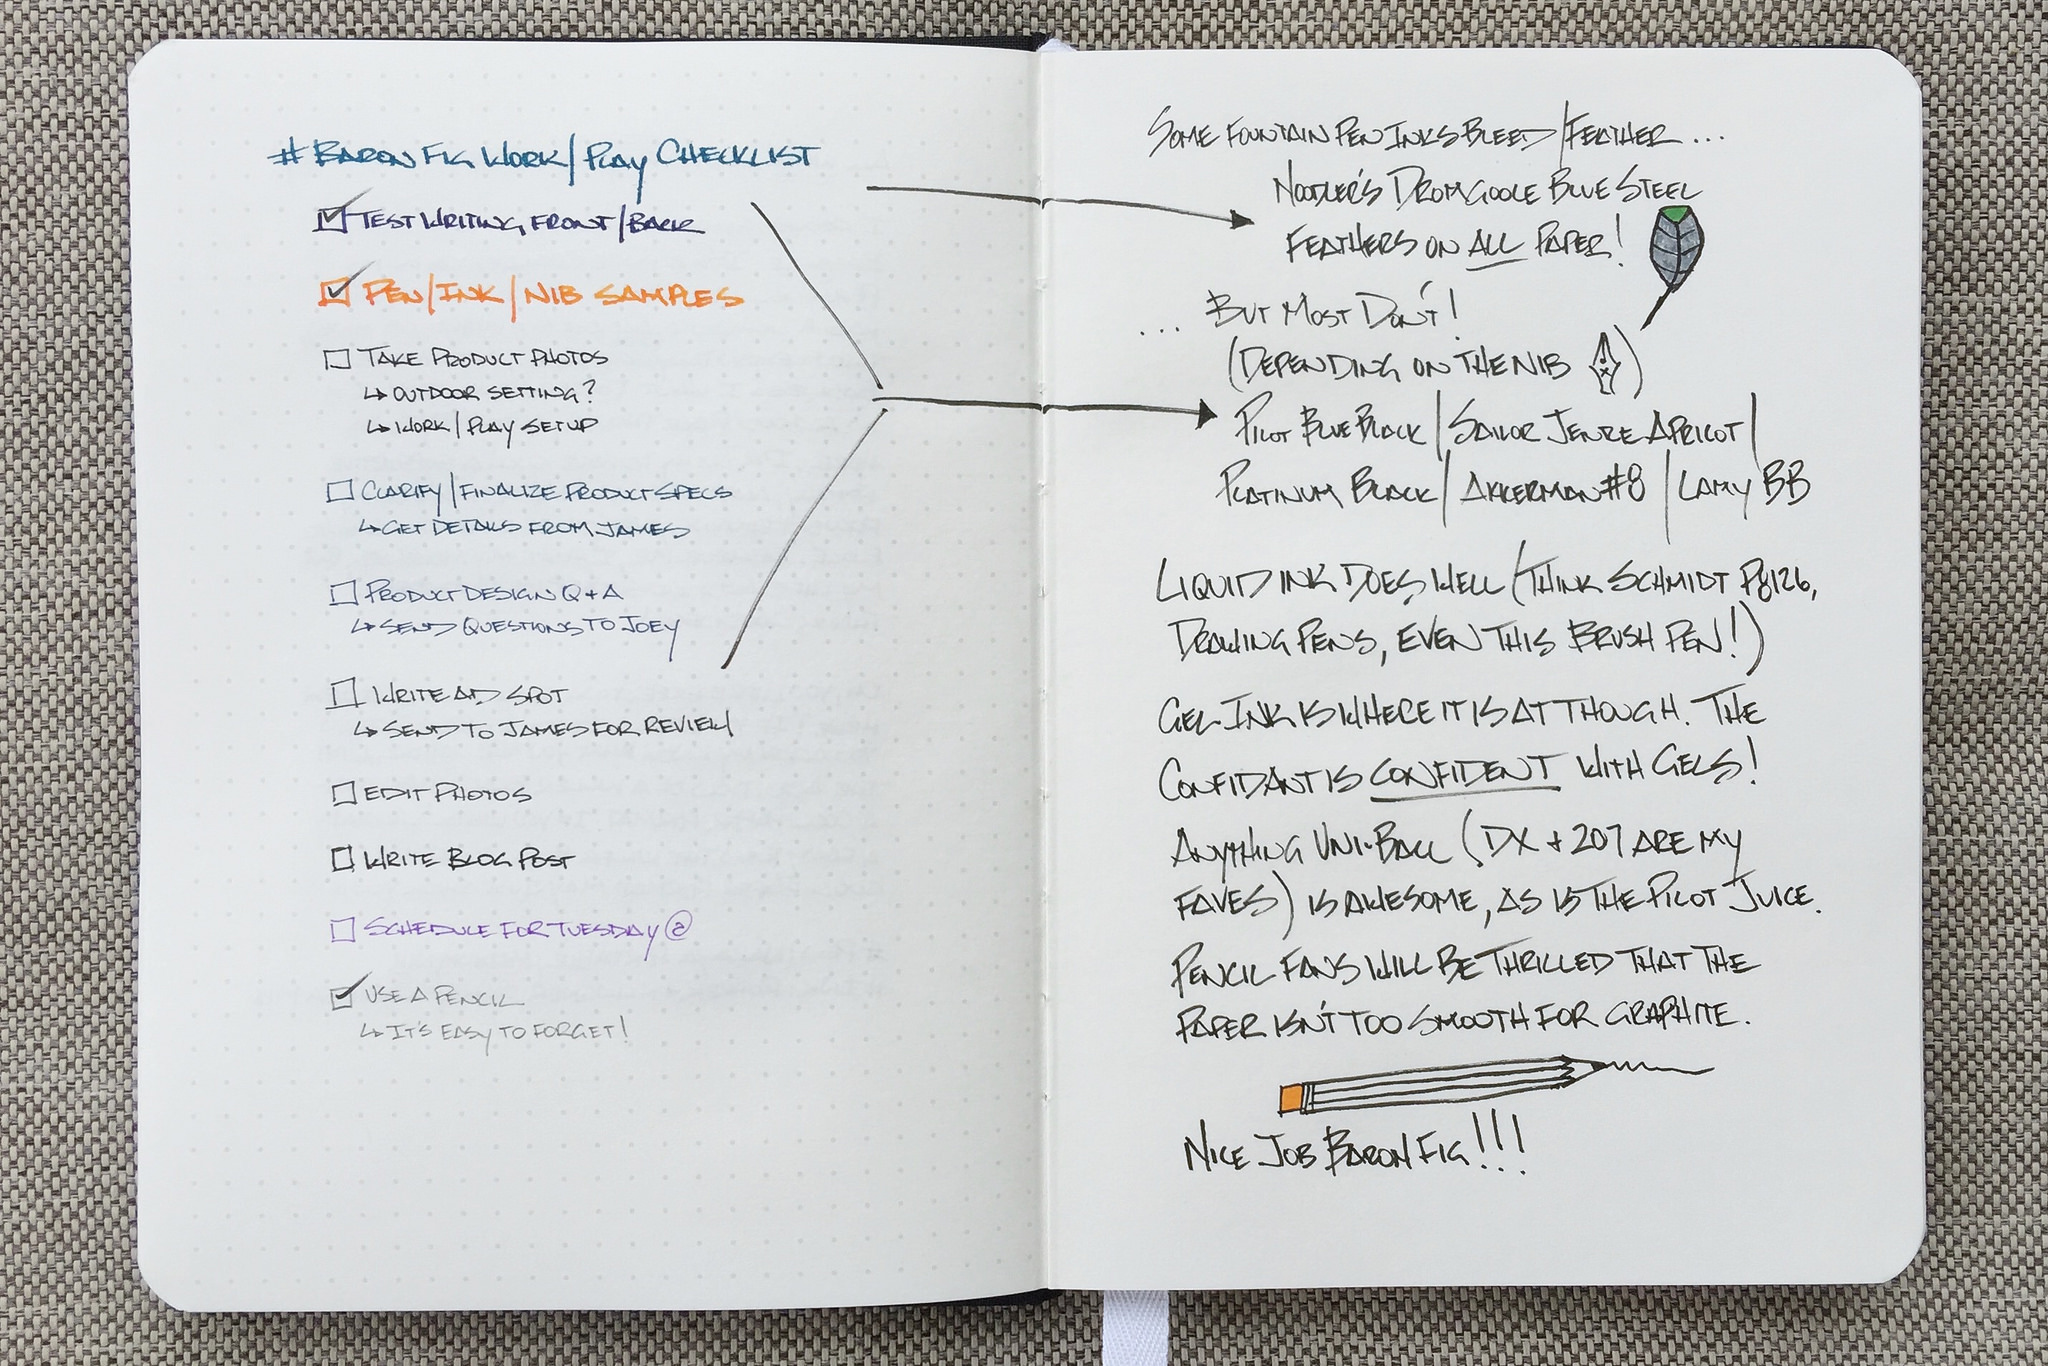 # BARON FIG WORK/PLAY CHECKLIST
TEST WRITING FRONT/BACK
PEN/INK/NIB SAMPLES
TAKE PRODUCT PHOTOS
↳ OUTDOOR SETTING?
↳ WORK/PLAY SETUP
CLARIFY/FINALIZE PRODUCT SPECS
↳ GET DETAILS FROM JAMES
PRODUCT DESIGN Q + A
↳ SEND QUESTIONS TO JOEY
WRITE AD SPOT
↳ SEND TO JAMES FOR REVIEW
EDIT PHOTOS
WRITE BLOG POST
SCHEDULE FOR TUESDAY @
USE A PENCIL
↳ IT'S EASY TO FORGET!
SOME FOUNTAIN PEN INKS BLEED/FEATHER ...
NOODLER'S DROMGOOLE BLUE STEEL
FEATHERS ON ALL PAPER!
... BUT MOST DON'T!
(DEPENDING ON THE NIB )
PILOT BLUE BLACK/SAILOR JENTLE APRICOT/
PLATINUM BLACK/AKKERMAN #8/LAMY BB
LIQUID INK DOES WELL (THINK SCHMIDT P8126,
DRAWING PENS, EVEN THIS BRUSH PEN!)
GEL INK IS WHERE IT IS AT THOUGH. THE
CONFIDANT IS CONFIDENT WITH GELS!
ANYTHING UNI-BALL (DX + 207 ARE MY
FAVES) IS AWESOME, AS IS THE PILOT JUICE.
PENCIL FANS WILL BE THRILLED THAT THE
PAPER ISN'T TOO SMOOTH FOR GRAPHITE.
NICE JOB BARON FIG!!!